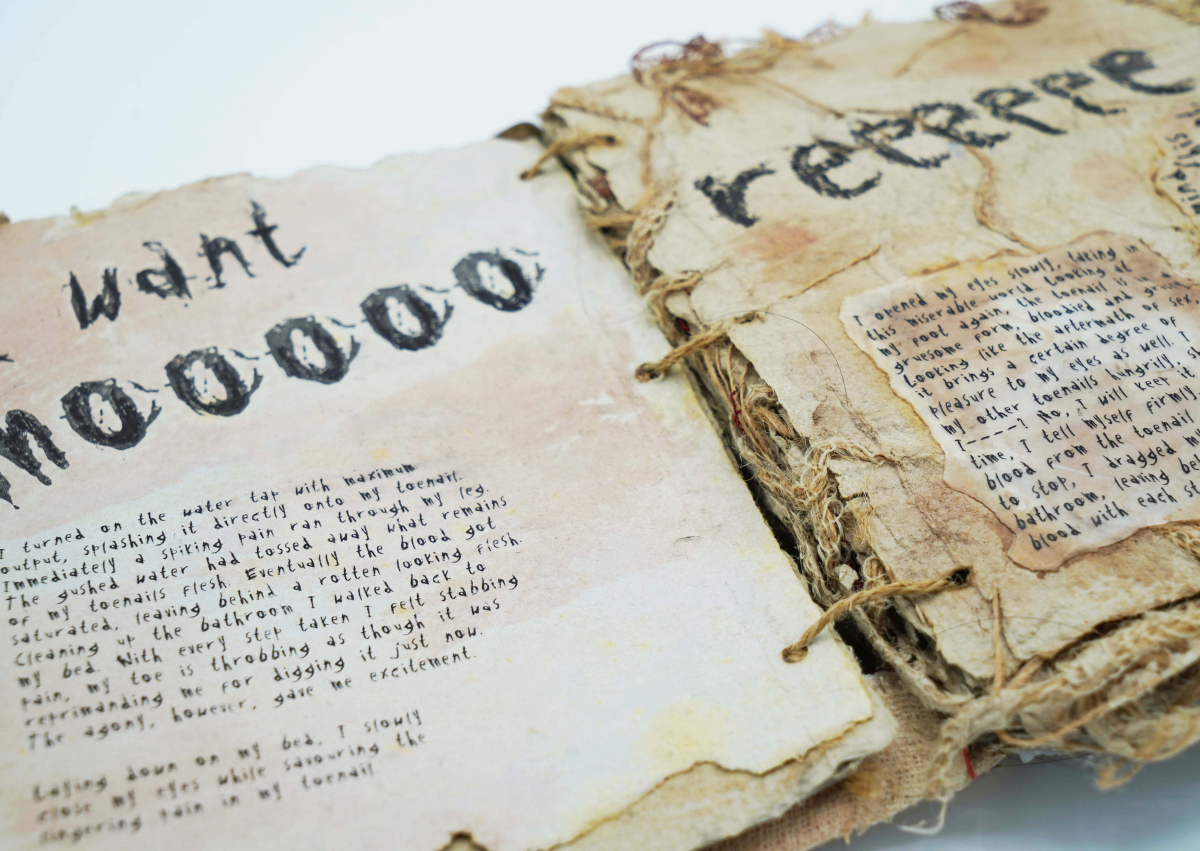 want
mooooo
I turned on the water tap with maximum
output, splashing it directly onto my toenail.
Immediately a spiking pain ran through my leg.
The gushed water had tossed away what remains
of my toenails flesh. Eventually the blood got
saturated, leaving behind a rotten looking flesh.
Cleaning up the bathroom I walked back to
my bed. With every step taken I felt stabbing
pain, my toe is throbbing as though it was
reprimanding me for digging it just now.
The agony, however, gave me excitement.
Laying down on my bed, I slowly
close my eyes while savouring the
lingering pain in my toenail.
repeppe
I opened my eyes slowly, taking in
this miserable world looking at
my foot again, the toenail is
gruesome form, bloodied and
Looking like the aftermath of sex,
it brings a certain degree of
pleasure to my eyes as well. I
my other toenails hungrily,
I----? No, I will keep it
time, I tell myself firmly
blood from the toenail
to stop, I dragged my
bathroom, leaving
blood with each